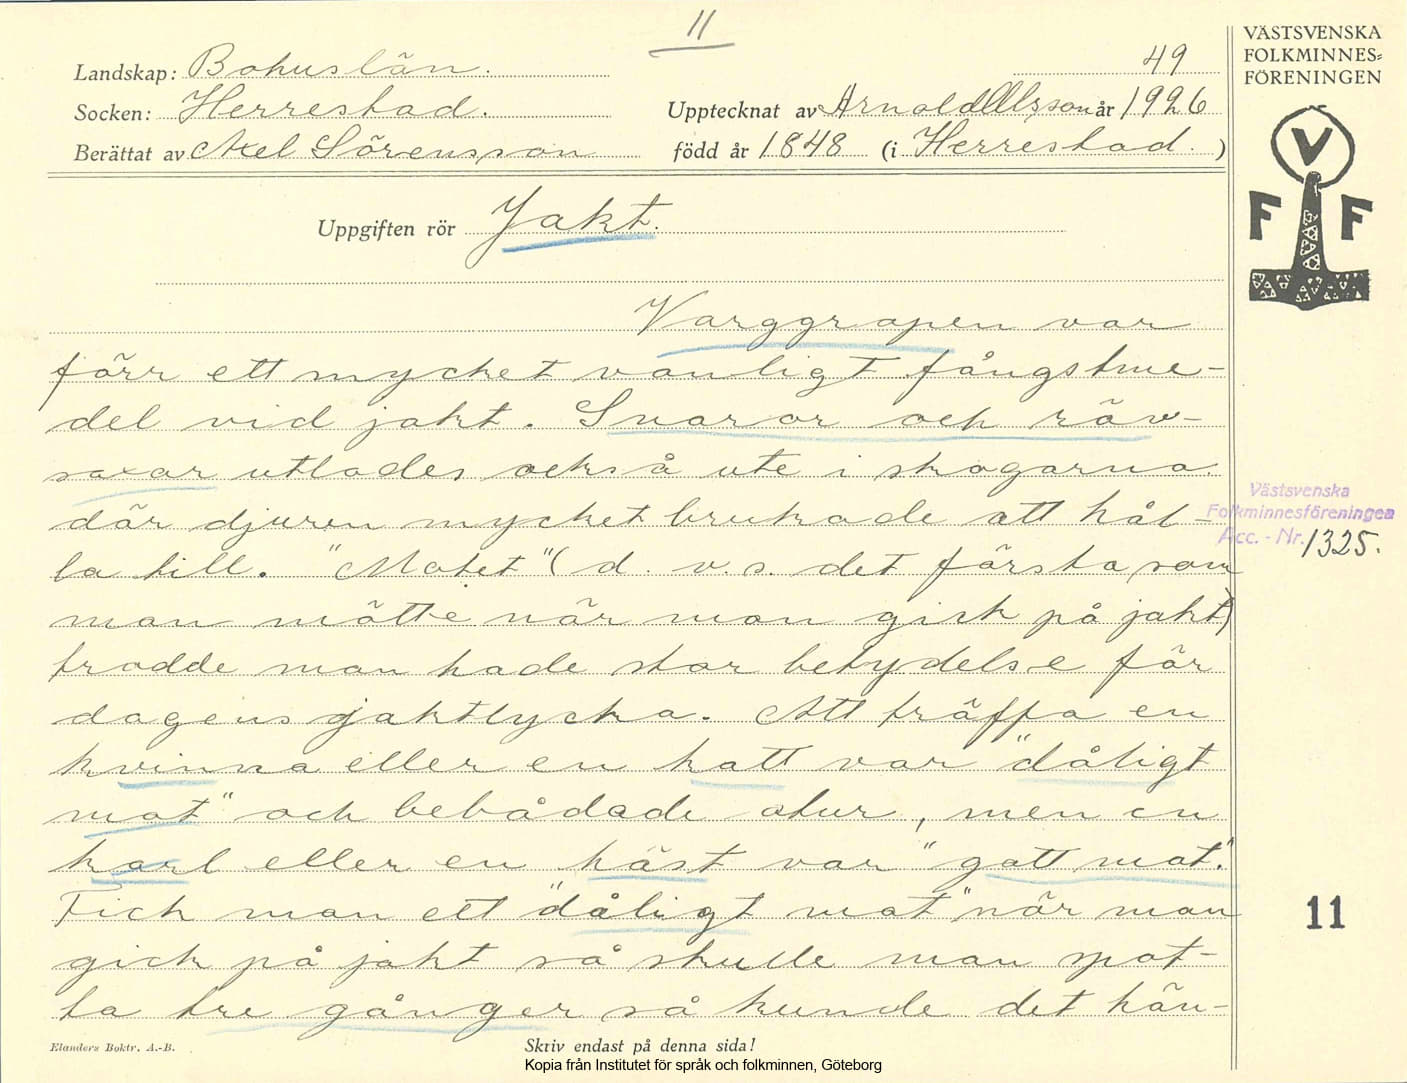 11
VÄSTSVENSKA
FOLKMINNES=
FÖRENINGEN
Landskap: Bohuslän. 49
Socken: Herrestad. Upptecknat av Arnold Olsson år 1926
Berättat av Axel Sörensson född år 1848 (i Herrestad. )
V
F F
Uppgiften rör Jakt.
Varggrapen var
förr ett mycket vanligt fångstme-
del vid jakt. Snaror och räv-
saxar utlades också ute i skogarna
där djuren mycket brukade att hål-
la till. "Motet" (d. v. s. det första som
man mötte när man gick på jakt)
trodde man hade stor betydelse för
dagens jaktlycka. Att träffa en
kvinna eller en katt var "dåligt
mot" och bebådade otur, men en
karl eller en häst var "gott mot".
Fick man ett "dåligt mot" när man
gick på jakt så skulle man spot-
ta tre gånger så kunde det hän-
Västsvenska
Folkminnesföreningen
Acc. - Nr. 1325.
11
Elanders Boktr. A.-B.
Skriv endast på denna sida!
Kopia från Institutet för språk och folkminnen, Göteborg